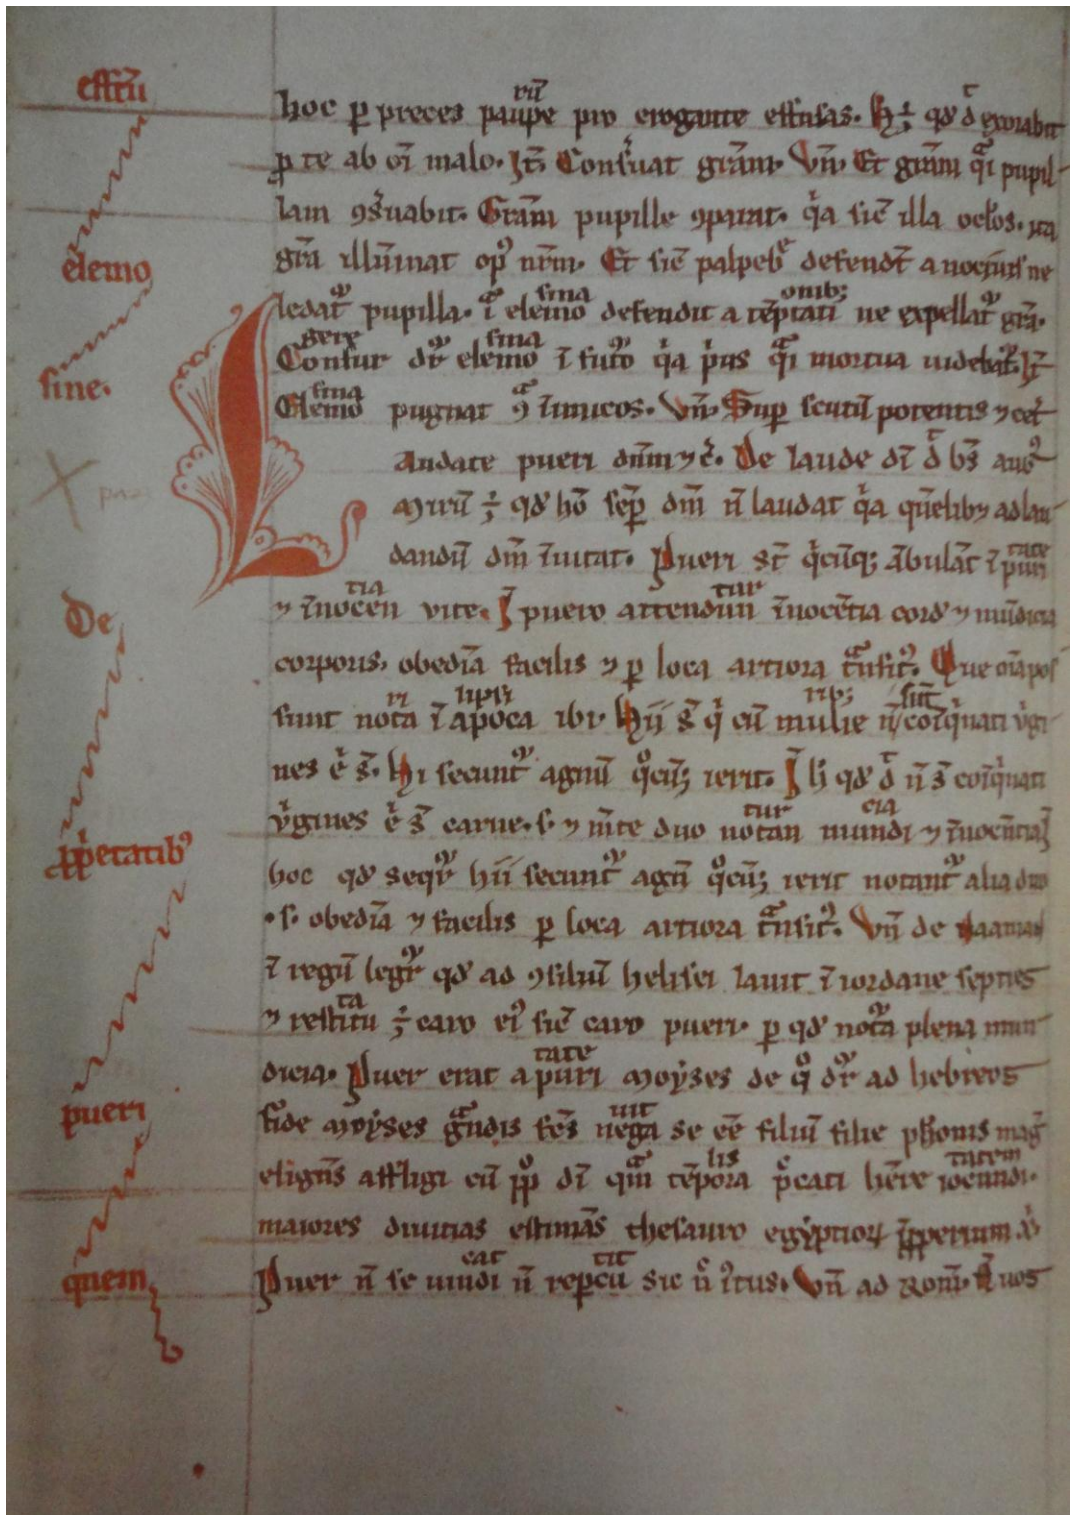 effectū
elemo
sine.
De
ꝓprietatibꝰ
pueri
quem
hoc ꝑ preces paupe rū pro erogante effusas. qd' exorabit
ꝓ te ab oī malo. Itē Conſeruat grām. Vn̄. Et grām qͣi pupil
lam ꝯſeruabit. Grām pupille ꝯparat. qͥa ſic̄ illa ocl̄os. ita
grā illūinat opꝰ nr̄m. Et ſic̄ palpebͤ defendūt a nociuis ne
ledatᷣ pupilla. elemo ſina defendit a tēptati onibꝫ ne expellatᷣ grā.
Conſur gere dr̄ elemo ſina ī futᷣo qͥa pͥus qͣi mortua uidebatᷣ. Itē
Elemo ſina pugnat ꝯͣ īimicos. Vn̄. Suꝑ ſcutū potentis ⁊ cet̄
Laudate pueri dn̄m ⁊ c̄. De laude dī bs̄ augꝰ
Mirū qd' hō ſeꝑ dm̄ n̄ laudat qͥa quēlibꝫ ad lau
dandū dm̄ īuitat. Pueri st̄ qͥcūqꝫ ābulāt ī puri tate
⁊ īnocen tia vite. I puero attendun tur īnocētia cord' ⁊ mūdicia
corporis, obediā facilis ⁊ ꝑ loca artiora tͣnſitꝰ. Que oīa poſ
ſunt nota ri ī apoca lipſi ibi. Hii s̄ qͥ cū mulie ribꝫ n̄ ſūt coīqͥnati v̓gi
nes s̄. Hi ſecuntᷣ agnū qͦcūqꝫ ierit. I h̄ qd' n̄ s̄ coīqͥnati
v̓gines s̄ carne. ſ. ⁊ mēte duo notan tur mundi cia ⁊ īnocētia. I
hoc qd' ſeqᷣ hii ſecuntᷣ agnū qͦcūqꝫ ierit notantᷣ alia duo
.ſ. obediā ⁊ facilis ꝑ loca artiora tͣnſitꝰ. Vn̄ de Naaman
ī regū legᷣ qd' ad ꝯſiliū heliſei lauit ī iordane ſepties
⁊ reſtitu ta caro eiꝰ ſic̄ caro pueri. ꝑ qd' notᷣa plena mun
dicia. Puer erat a puri tate Moyſes de qͦ dr̄ ad hebreos
fide Moyſes gͣndis fc̄s nega uit se eē filiū filie phͣonis magͥ
eligēs affligi cū ꝓꝓ dī qͣm tēpora lis pͨcati hr̄e iocundi tatem.
maiores diuitias eſtimās theſauro egyptioꝝ
Puer n̄ ſe uindi cat n̄ ꝑcu tit ſic n̄ Vn̄ ad Rom̄. uos